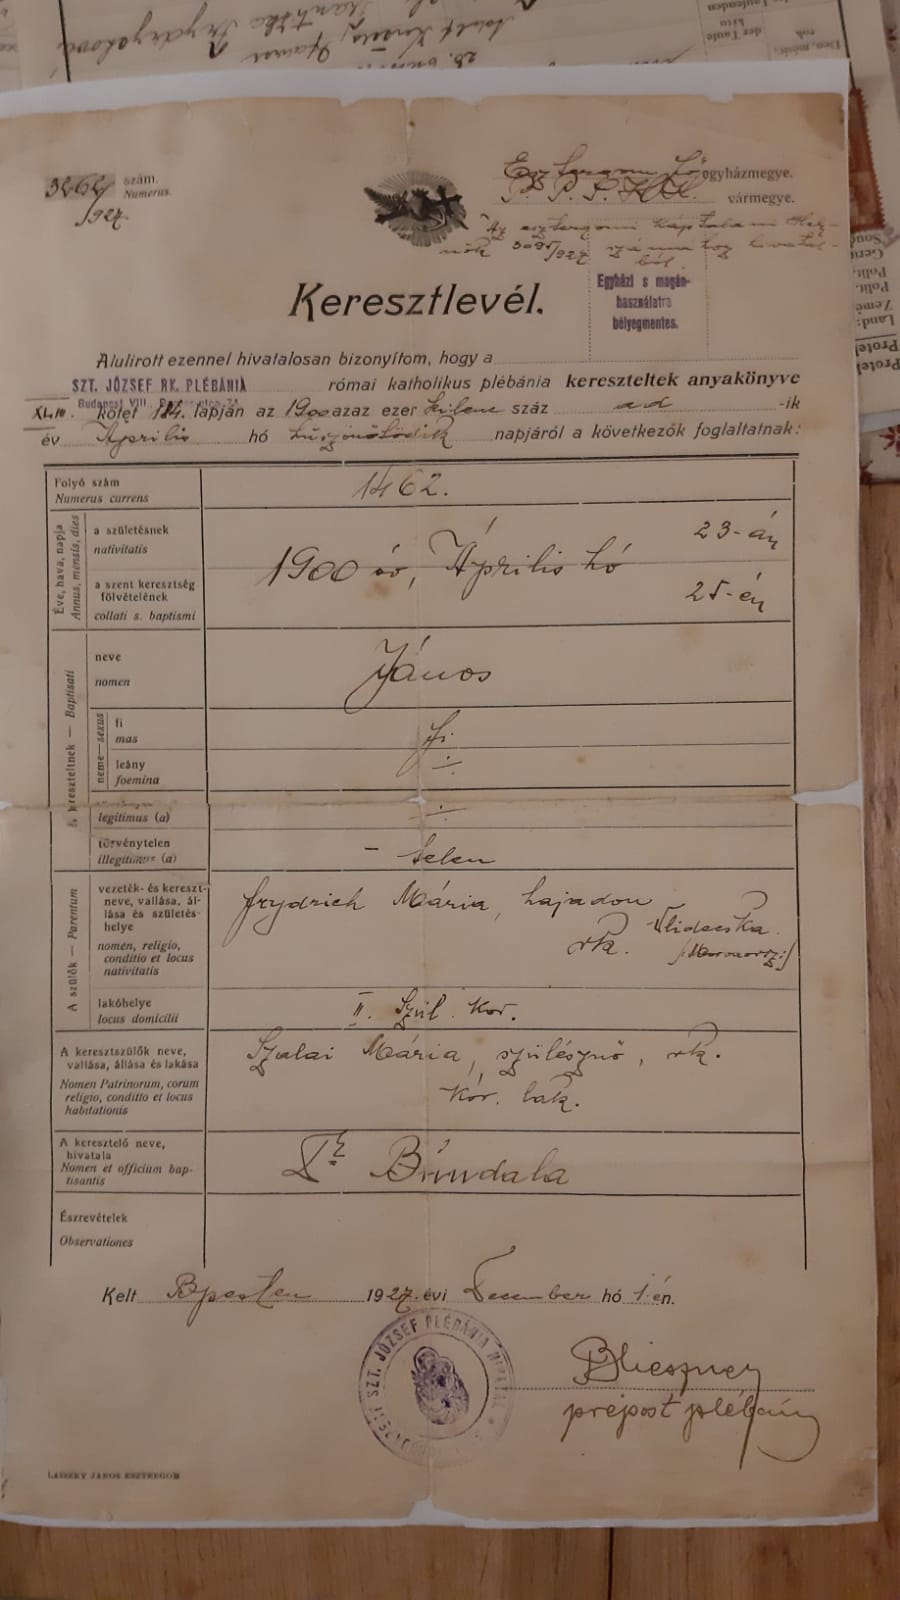 3262/927. szám.
Numerus.
Esztergom fő egyházmegye.
P. P. S. K. K. vármegye.
Az esztergomi káptalani
3095/927 számu
Egyházi s magán-
használatra
bélyegmentes.
Keresztlevél.
Alulirott ezennel hivatalosan bizonyítom, hogy a
SZT. JÓZSEF RK. PLÉBÁNIA római katholikus plébánia kereszteltek anyakönyve
Budapest VIII.
XLIII. kötet 184. lapján az 1900 azaz ezer kilenc száz ad -ik
év Április hó huszonötödik napjáról a következők foglaltatnak:
Folyó szám
Numerus currens
1462.
Éve, hava, napja
Annus, mensis, dies
a születésnek
nativitatis
23-án
1900 év, Április hó
a szent keresztség
fölvételének
collati s. baptismi
25-én
A kereszteltnek — Baptisati
neve
nomen
János
neme—sexus
fi
mas
fi.
leány
foemina
legitimus (a)
törvénytelen
illegitimus (a)
- telen
A szülők — Parentum
vezeték- és kereszt-
neve, vallása, ál-
lása és születés-
helye
nomen, religio,
conditio et locus
nativitatis
Frydrich Mária, hajadon
rk.
lakóhelye
locus domicilii
II. Szül. Kor.
A keresztszülők neve,
vallása, állása és lakása
Nomen Patrinorum, corum
religio, conditio et locus
habitationis
Szalai Mária, szülésznő, rk.
Kór. lak.
A keresztelő neve,
hivatala
Nomen et officium bap-
tisantis
Bundala
Észrevételek
Observationes
Kelt Bpesten 1927. évi December hó 1-én.
SZT. JÓZSEF PLÉBÁNIA HIVATAL
prépost plébános
LAISZKY JÁNOS ESZTERGOM